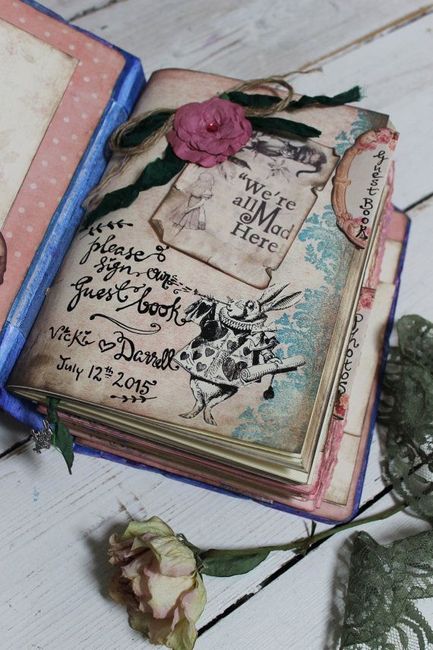 "We're
all Mad
Here
GUEST BOOK
please
sign our
Guest book
Vicki ♡ Darrell
July 12th 2015
PHOTOS